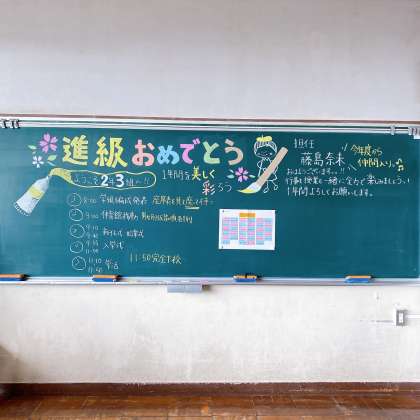 進級おめでとう
ようこそ2年3組へ!!
1年間を美しく
彩ろう
8:00 学級編成発表 座席表を見て座って待つ
9:00 体育館移動
9:10
9:40
新任式 始業式
入学式
11:10
11:50
学活
11:50完全下校
担任
藤島奈未
今年度から
仲間入り♪
おはようございます。!!
行事も授業も一緒に全力で楽しみましょう!
1年間よろしくお願いします。